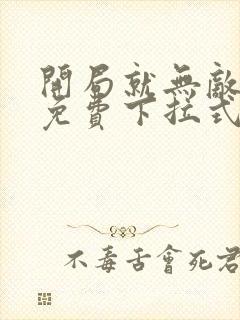 開局就無敵
免費下拉式
不毒舌會死君